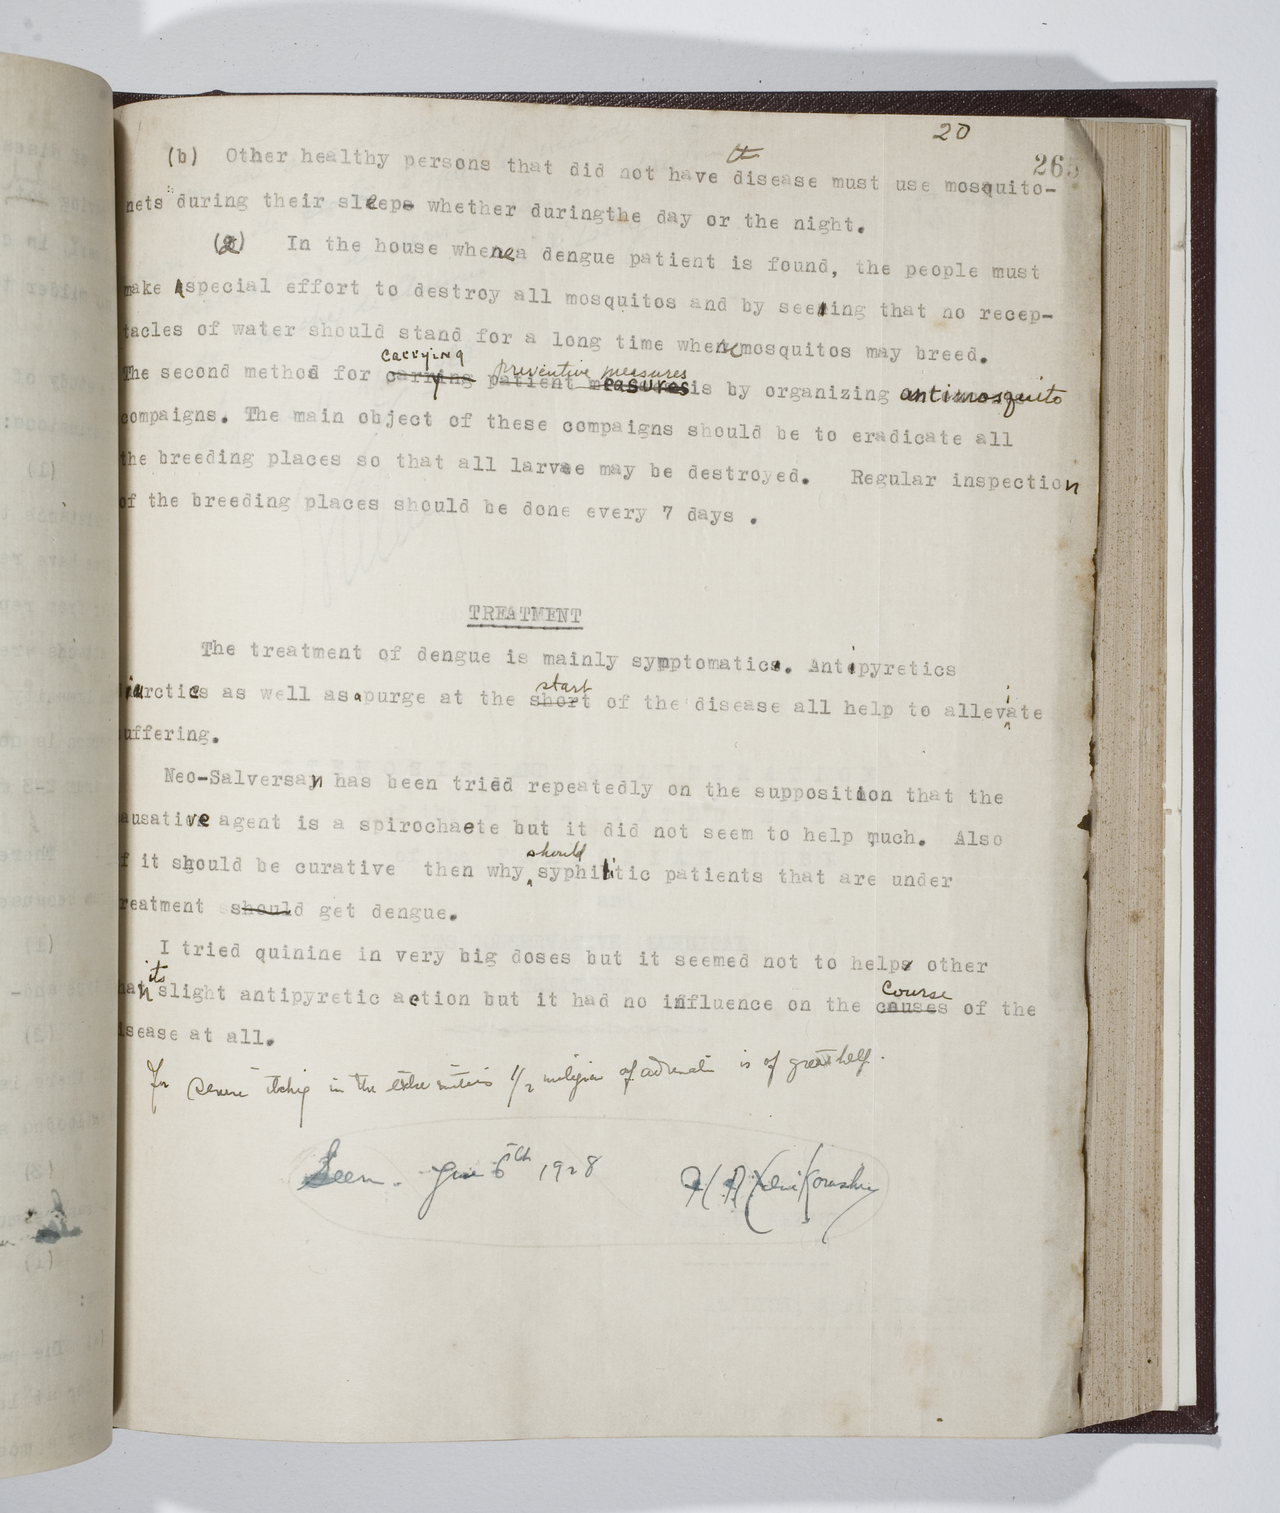 20
265
(b) Other healthy persons that did not have the disease must use mosquito-
nets during their sleep whether duringthe day or the night.
(2) In the house where a dengue patient is found, the people must
make special effort to destroy all mosquitos and by seeing that no recep-
tacles of water should stand for a long time where mosquitos may breed.
carrying preventive measures
The second method for carrying patient measures is by organizing antimosquito
compaigns. The main object of these compaigns should be to eradicate all
the breeding places so that all larvae may be destroyed. Regular inspection
of the breeding places should be done every 7 days .
TREATMENT
The treatment of dengue is mainly symptomatic. Antipyretics
as well as a purge at the short start of the disease all help to alleviate
uffering.
Neo-Salversan has been tried repeatedly on the supposition that the
ausative agent is a spirochaete but it did not seem to help much. Also
f it should be curative then why should syphilitic patients that are under
reatment should get dengue.
I tried quinine in very big doses but it seemed not to help other
han its slight antipyretic action but it had no influence on the causes course of the
isease at all.
For severe itching in the extremities 1/2 of is of great help.
Seen. June 5th 1928